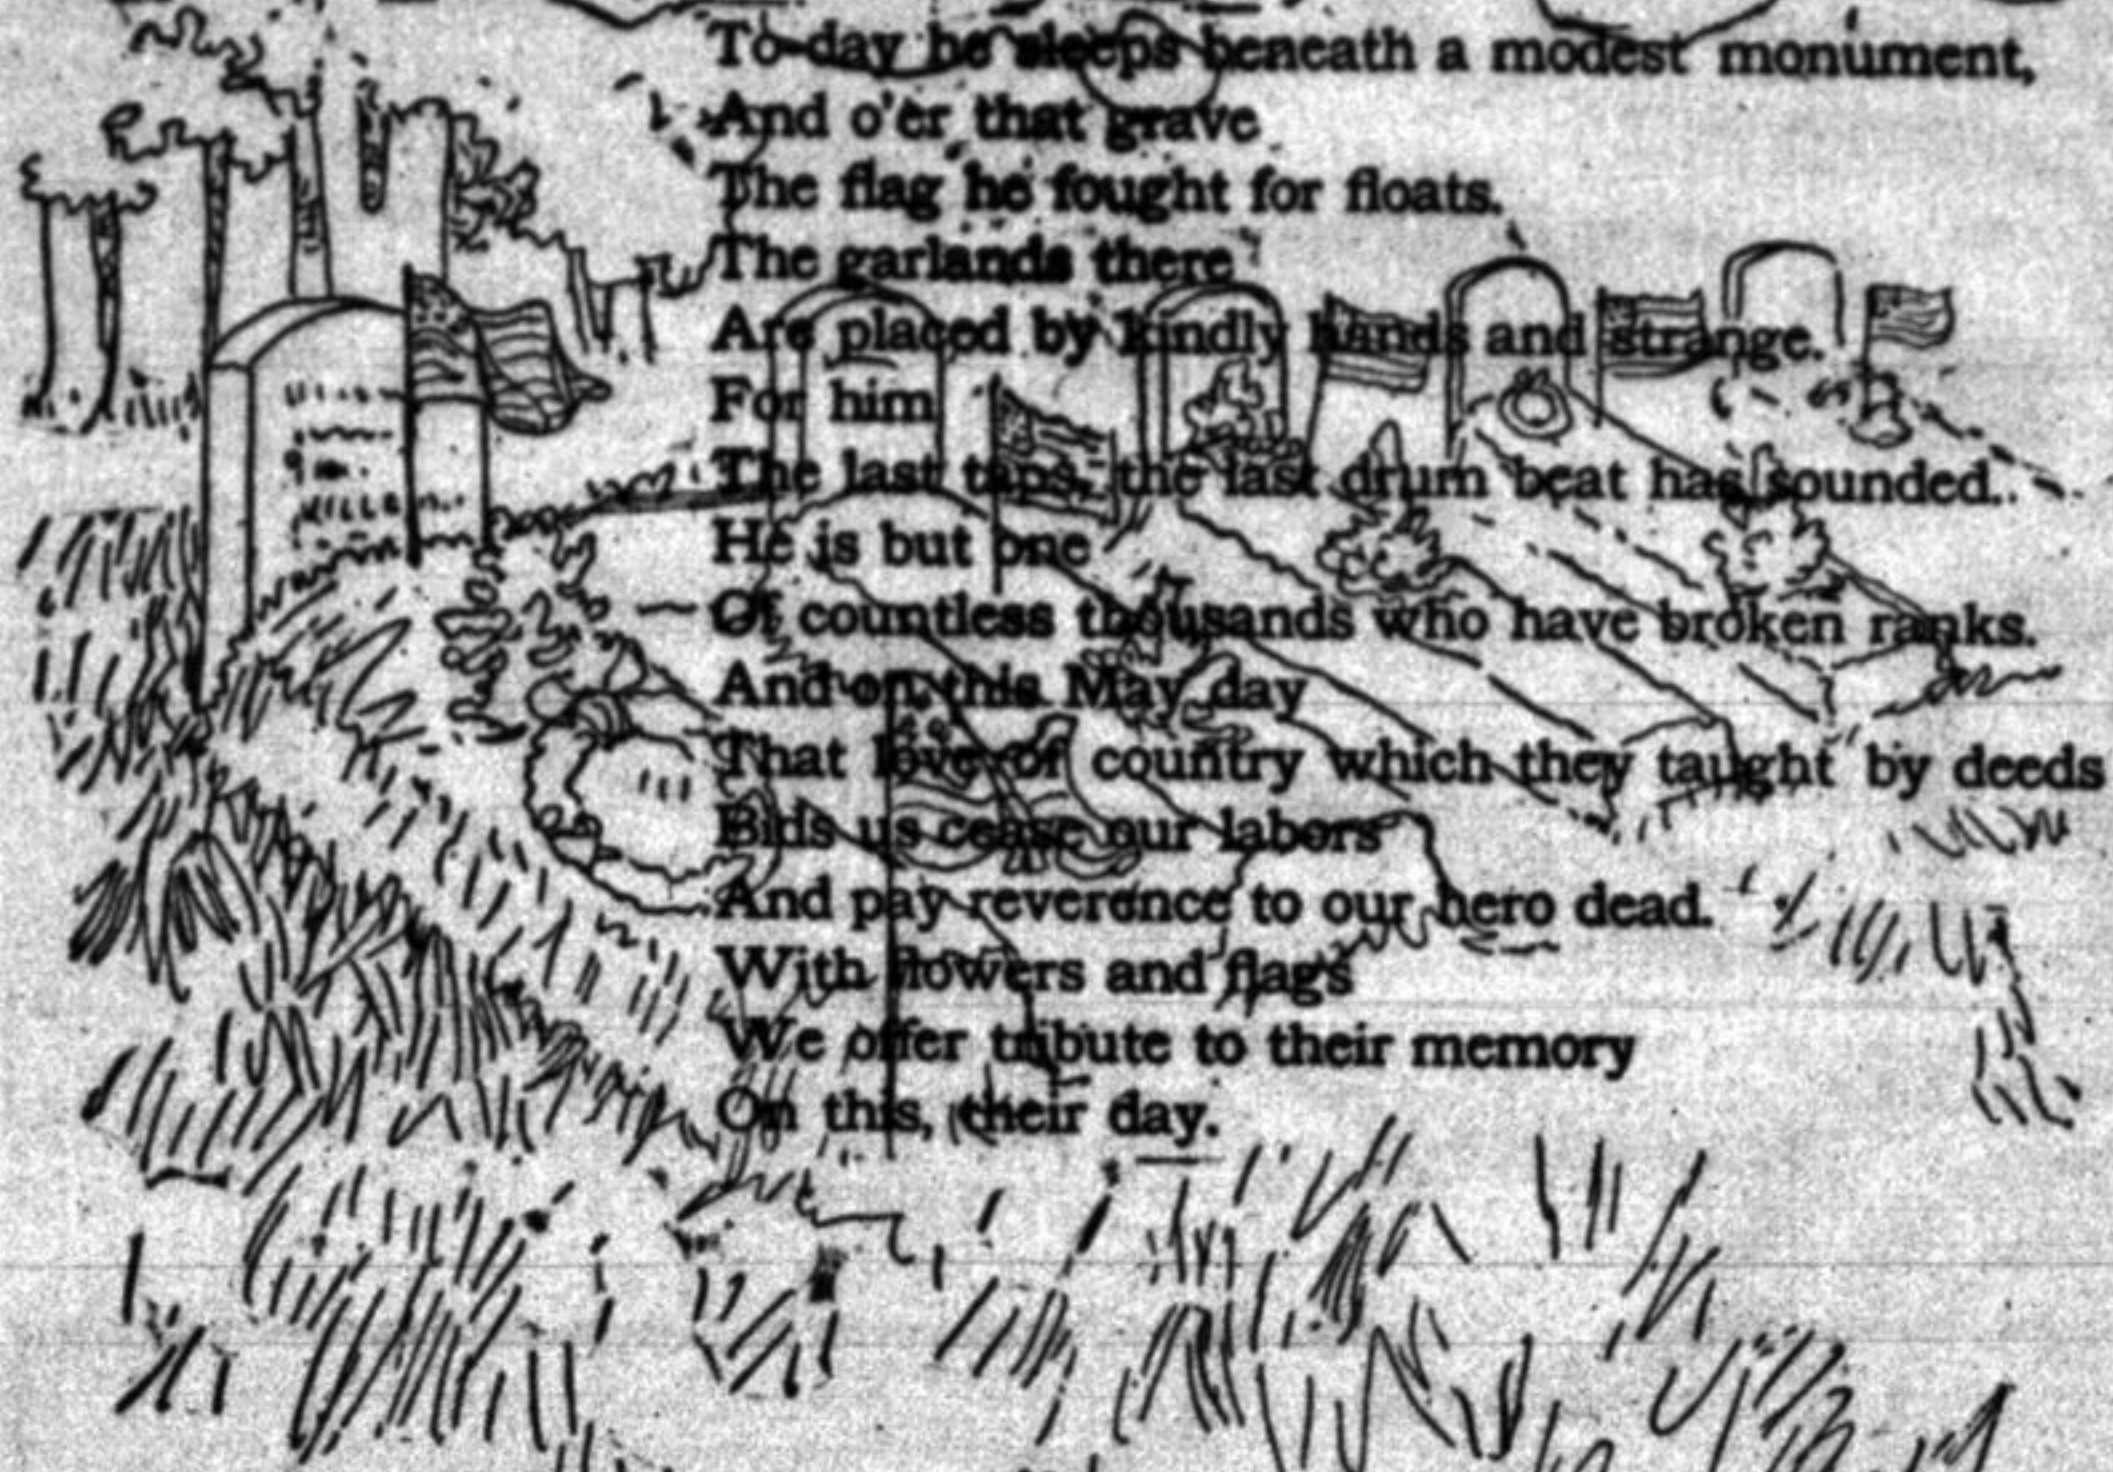 To-day he sleeps beneath a modest monument,
And o'er that grave
The flag he fought for floats.
The garlands there
Are placed by kindly hands and strange.
For him
The last taps, the last drum beat has sounded.
He is but one
Of countless thousands who have broken ranks.
And on this May day
That love of country which they taught by deeds
Bids us cease our labors
And pay reverence to our hero dead.
With flowers and flags
We offer tribute to their memory
On this, their day.